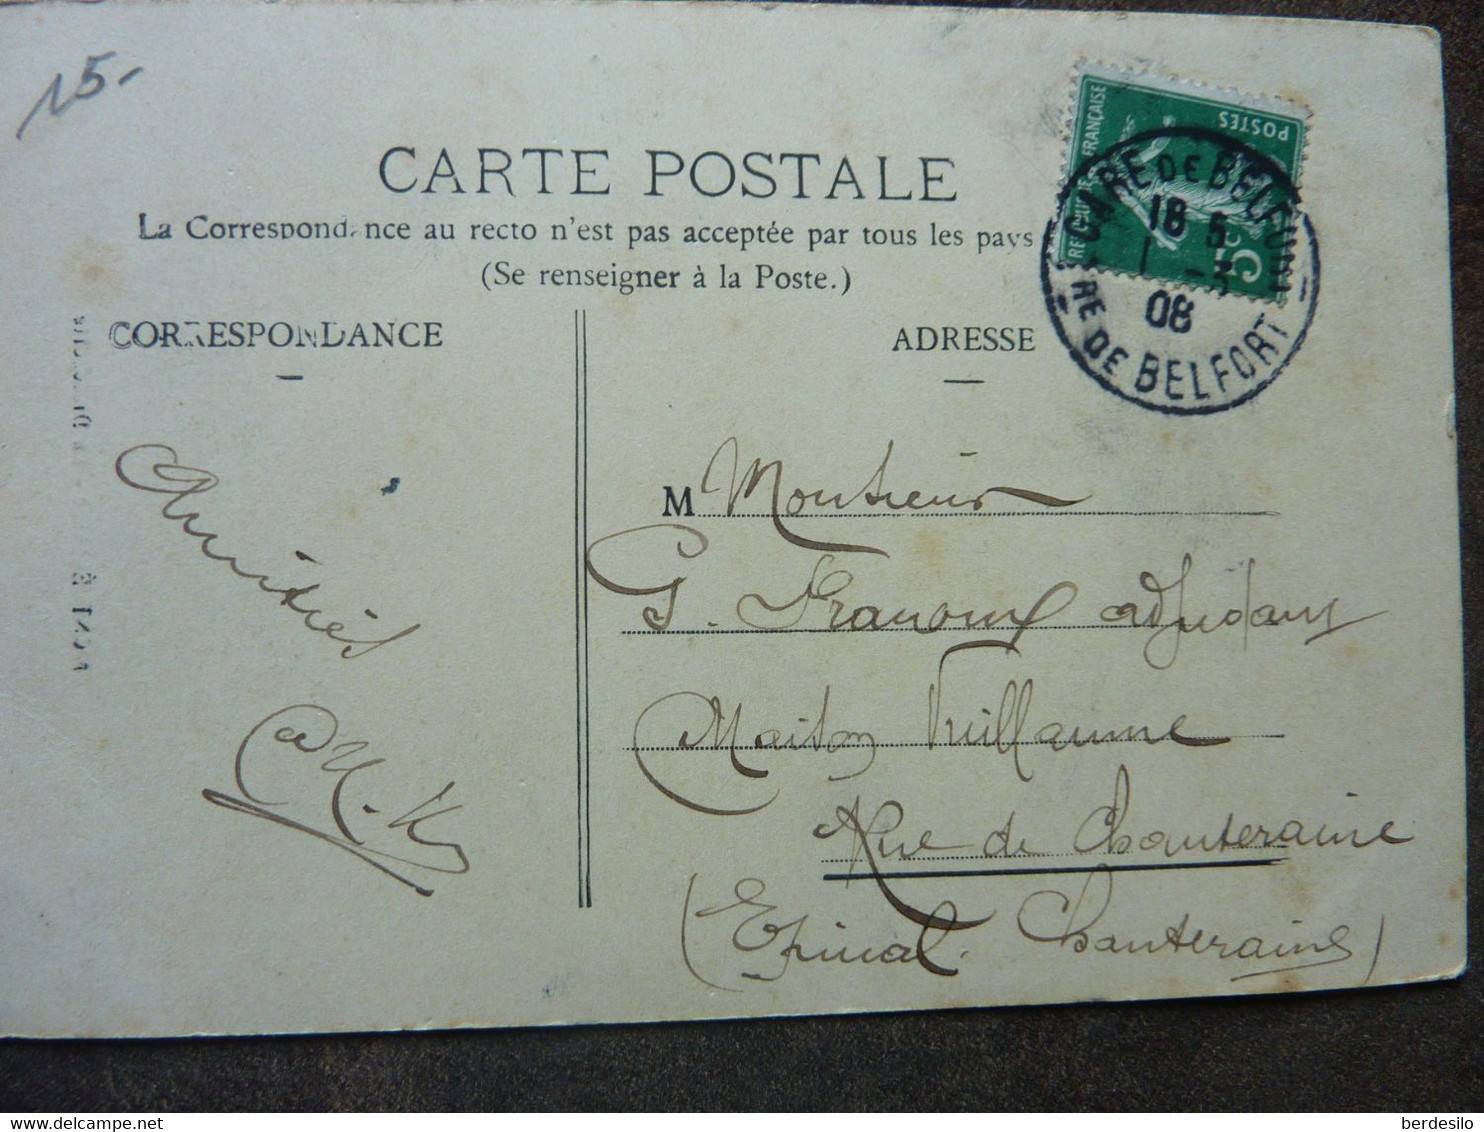 15.-
CARTE POSTALE
La Correspondance au recto n'est pas acceptée par tous les pays
(Se renseigner à la Poste.)
CORRESPONDANCE
ADRESSE
REPUBLIQUE FRANÇAISE
POSTES
5c
GARE DE BELFORT
18 5
1 -3
08
GARE DE BELFORT
Amitiés
M Monsieur
G. Franoux adjudant
Maison Vuillaume
Rue de Chanteraine
(Epinal. Chanteraine)
berdesilo